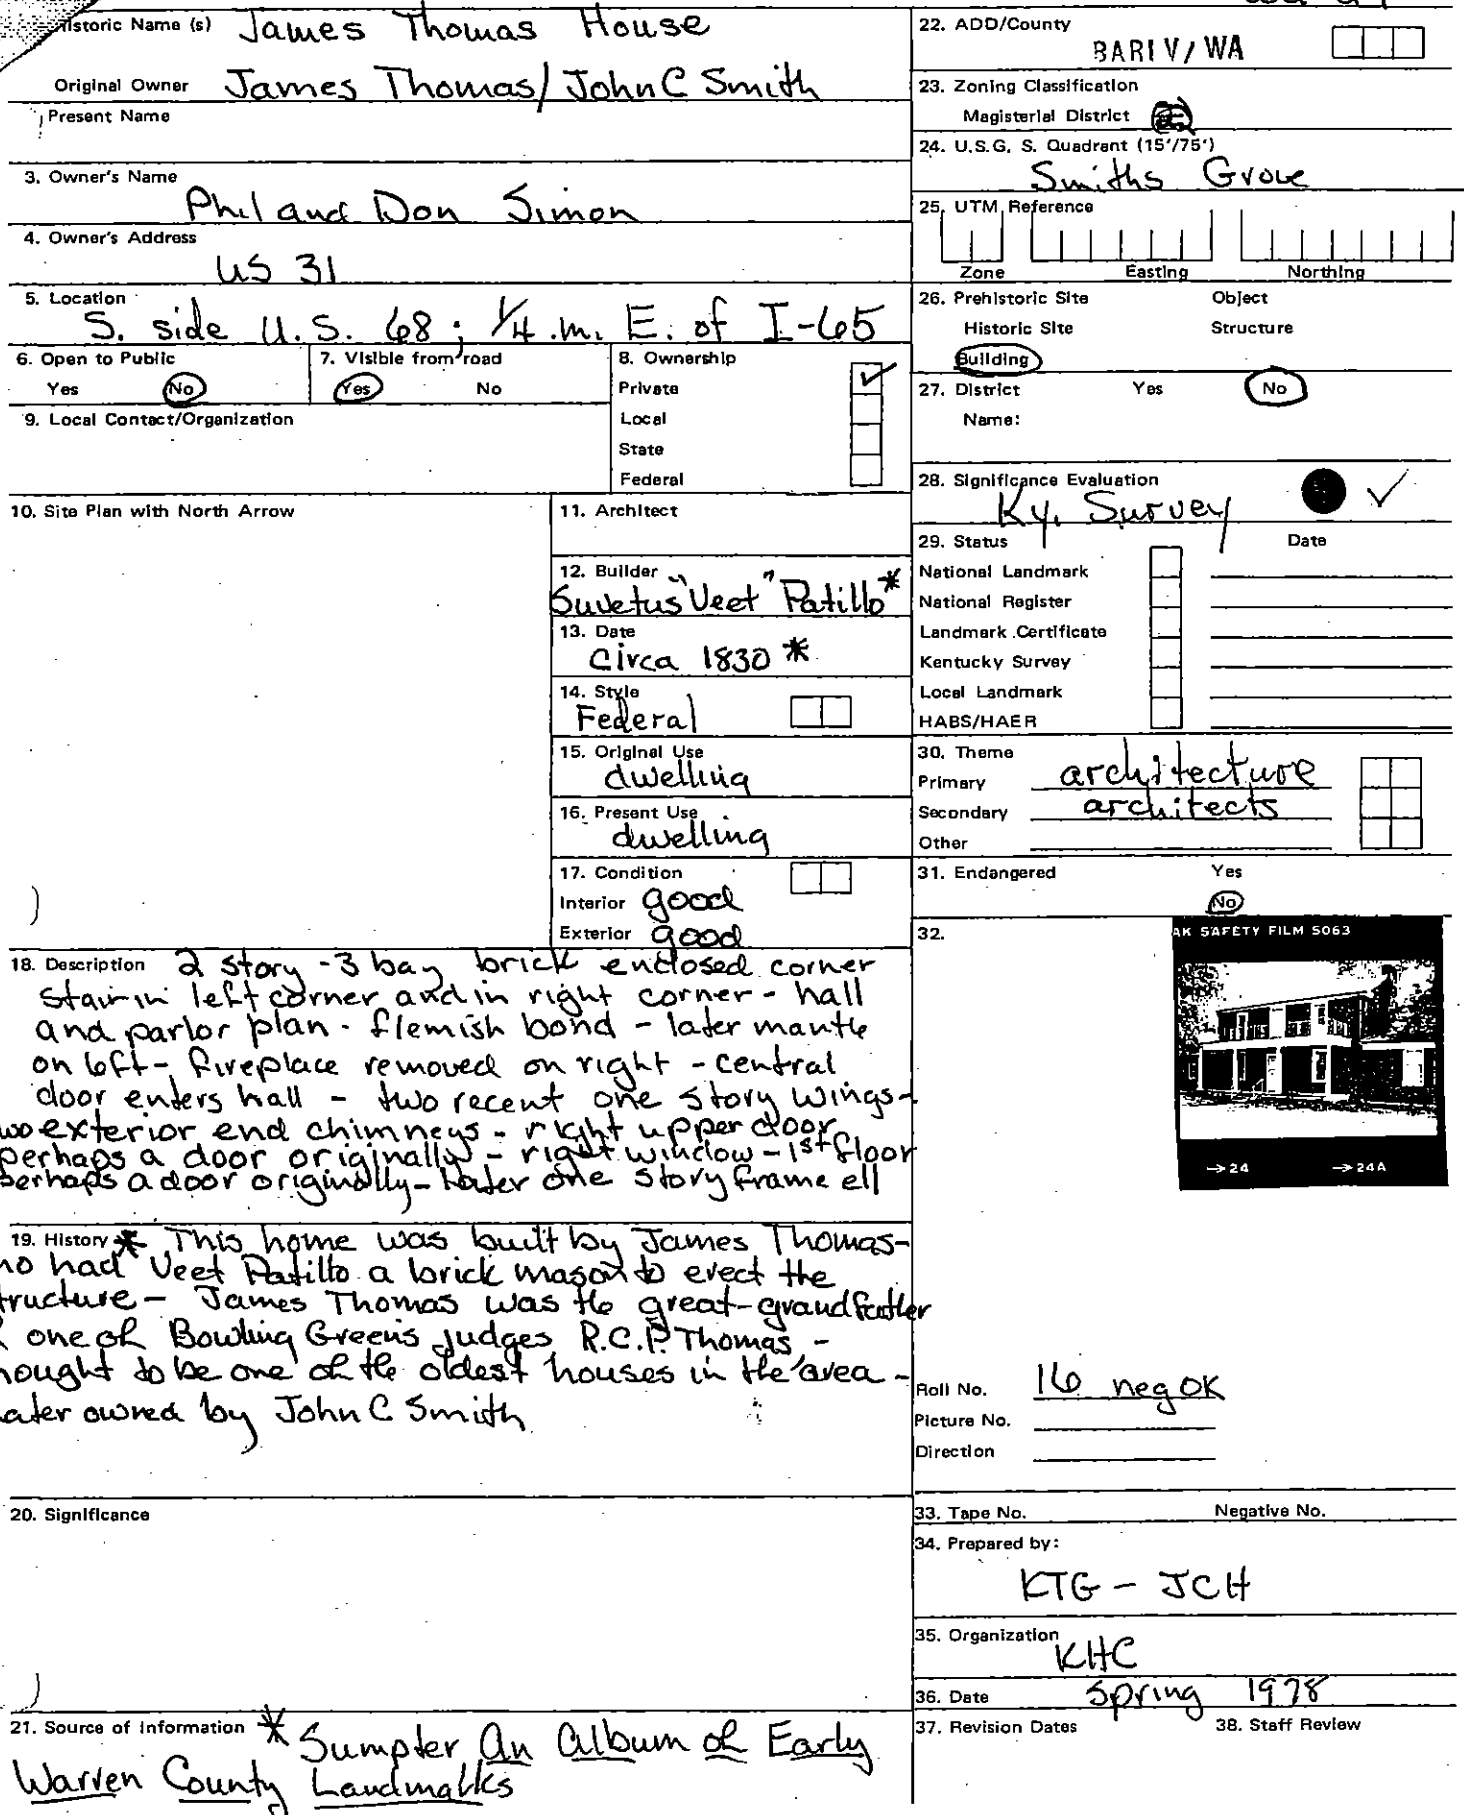 Historic Name (s) James Thomas House
Original Owner James Thomas/John C Smith
Present Name
3. Owner's Name
Phil and Don Simon
4. Owner's Address
US 31
5. Location
S. side U.S. 68; 1/4 m. E. of I-65
6. Open to Public
Yes No
7. Visible from road
Yes No
8. Ownership
Private ✓
Local
State
Federal
9. Local Contact/Organization
10. Site Plan with North Arrow
11. Architect
12. Builder
Suvetus "Veet" Patillo*
13. Date
Circa 1830 *
14. Style
Federal
15. Original Use
dwelling
16. Present Use
dwelling
17. Condition
Interior good
Exterior good
18. Description 2 story - 3 bay brick enclosed corner
stair in left corner and in right corner - hall
and parlor plan - flemish bond - later mantle
on left - fireplace removed on right - central
door enters hall - two recent one story wings -
wo exterior end chimneys - right upper door
perhaps a door originally - right window - 1st floor
perhaps a door originally - later one story frame ell
19. History * This home was built by James Thomas -
ho had Veet Patillo a brick mason to erect the
tructure - James Thomas was the great-grandfather
one of Bowling Green's judges R.C.P. Thomas -
hought to be one of the oldest houses in the area -
ater owned by John C Smith
20. Significance
21. Source of Information * Sumpter An Album of Early
Warren County Landmarks
22. ADD/County
BARIV/WA
23. Zoning Classification
Magisterial District
24. U.S.G. S. Quadrant (15'/75')
Smiths Grove
25. UTM Reference
Zone Easting Northing
26. Prehistoric Site Object
Historic Site Structure
Building
27. District Yes No
Name:
28. Significance Evaluation
Ky. Survey ✓
29. Status Date
National Landmark
National Register
Landmark Certificate
Kentucky Survey
Local Landmark
HABS/HAER
30. Theme
Primary architecture
Secondary architects
Other
31. Endangered Yes
No
32.
AK SAFETY FILM 5063
→24 →24A
Roll No. 16 neg OK
Picture No.
Direction
33. Tape No. Negative No.
34. Prepared by:
KTG - JCH
35. Organization
KHC
36. Date Spring 1978
37. Revision Dates 38. Staff Review